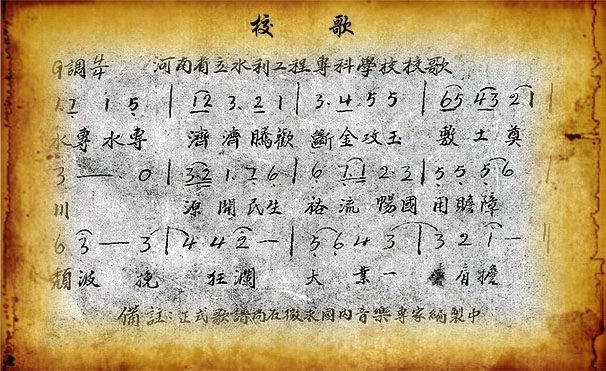 校歌
G調 4/4 河南省立水利工程專科學校校歌
1. 1 1 5 | 12 3. 2 1 | 3. 4 5 5 | 65 43 2 1 |
水專水專 濟濟騰歡 斷金攻玉 敷土奠
3 — — 0 | 32 1. 7 6 | 6 7.1 2.3 | 5 5 5 6
川 源開民生 裕流暢國用瞻障
6 3 — 3 | 4 4 2 — | 5 6 4 3 | 3 2 1 —
頹波挽狂瀾大業一肩擔
備註:正式歌譜尚在徵求國內音樂專家編製中